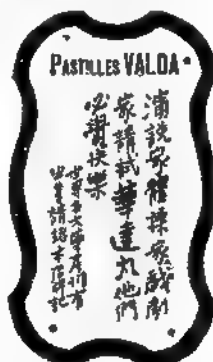 PASTILLES VALDA
演說家體操家戲劇
家請試華達丸他們
必獲快樂
世界各大藥房均有
出售請認本店牌記